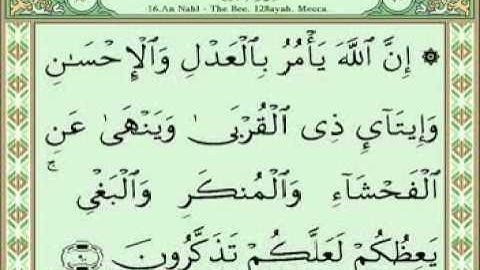 16.An Nahl - The Bee. 128ayah. Mecca.
۞ إِنَّ ٱللَّهَ يَأْمُرُ بِٱلْعَدْلِ وَٱلْإِحْسَـٰنِ
وَإِيتَآئِ ذِى ٱلْقُرْبَىٰ وَيَنْهَىٰ عَنِ
ٱلْفَحْشَآءِ وَٱلْمُنكَرِ وَٱلْبَغْىِ ۚ
يَعِظُكُمْ لَعَلَّكُمْ تَذَكَّرُونَ ٩٠